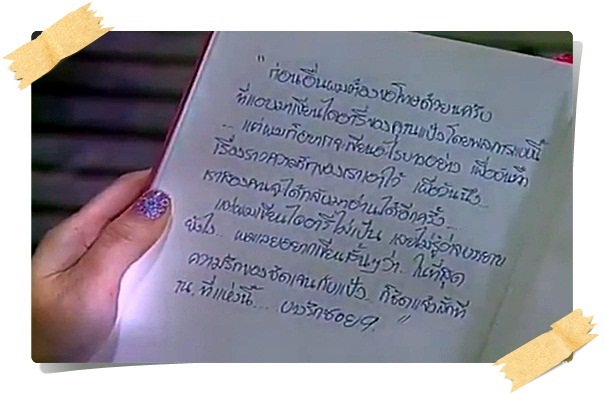 " ก่อนอื่นผมต้องขอโทษด้วยนะครับ
ที่แอบมาเขียนไดอารี่ของคุณแป้งโดยพลการแบบนี้
... แต่ผมก็อยากจะเขียนอะไรบางอย่าง เพื่อบันทึก
เรื่องราวความรักของเราเอาไว้ เผื่อวันนึง...
เราสองคนจะได้กลับมาอ่านได้อีกครั้ง...
แต่ผมเขียนไดอารี่ไม่เป็น และไม่รู้จะบรรยาย
ยังไง... ผมเลยอยากเขียนสั้นๆว่า. ในที่สุด
ความรักของชัดเจนกับแป้ง.. ก็ชัดแจ๋วสักที
ณ. ที่แห่งนี้... บางรักซอย 9. "